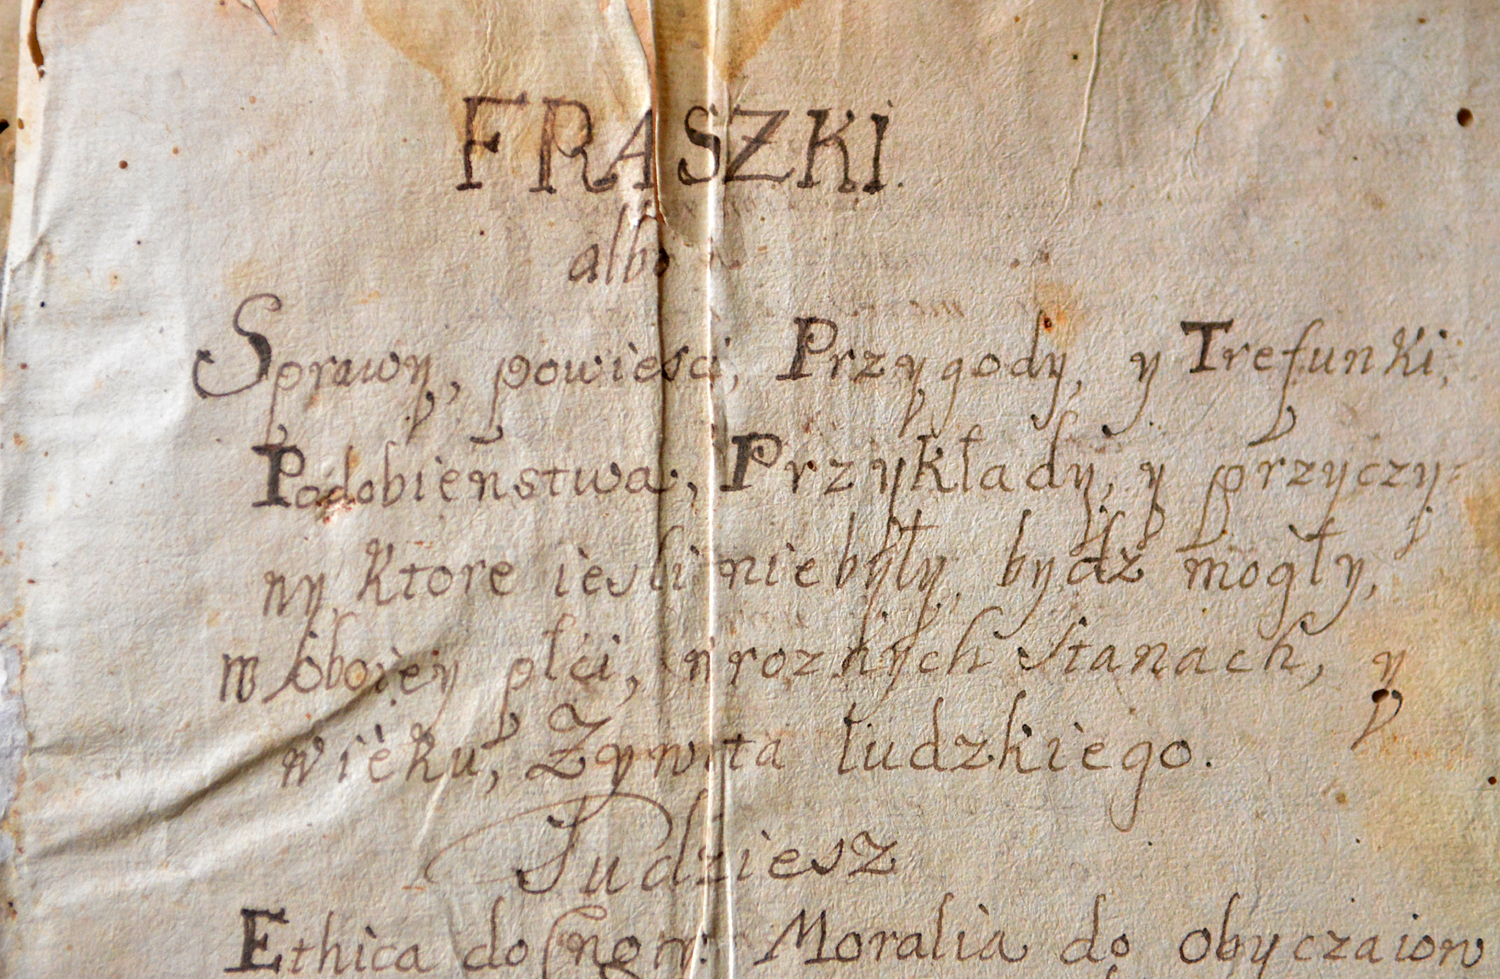 FRASZKI.
albo
Sprawy, powieści, Przygody, y Trefunki,
Podobieństwa, Przykłady, y przyczy-
ny ktore ieśli niebyły, bydz mogły,
w oboiey płci, w roznych Stanach, y
wieku, Zywota ludzkiego.
Tudziesz
Ethica do Moralia do obyczaiow